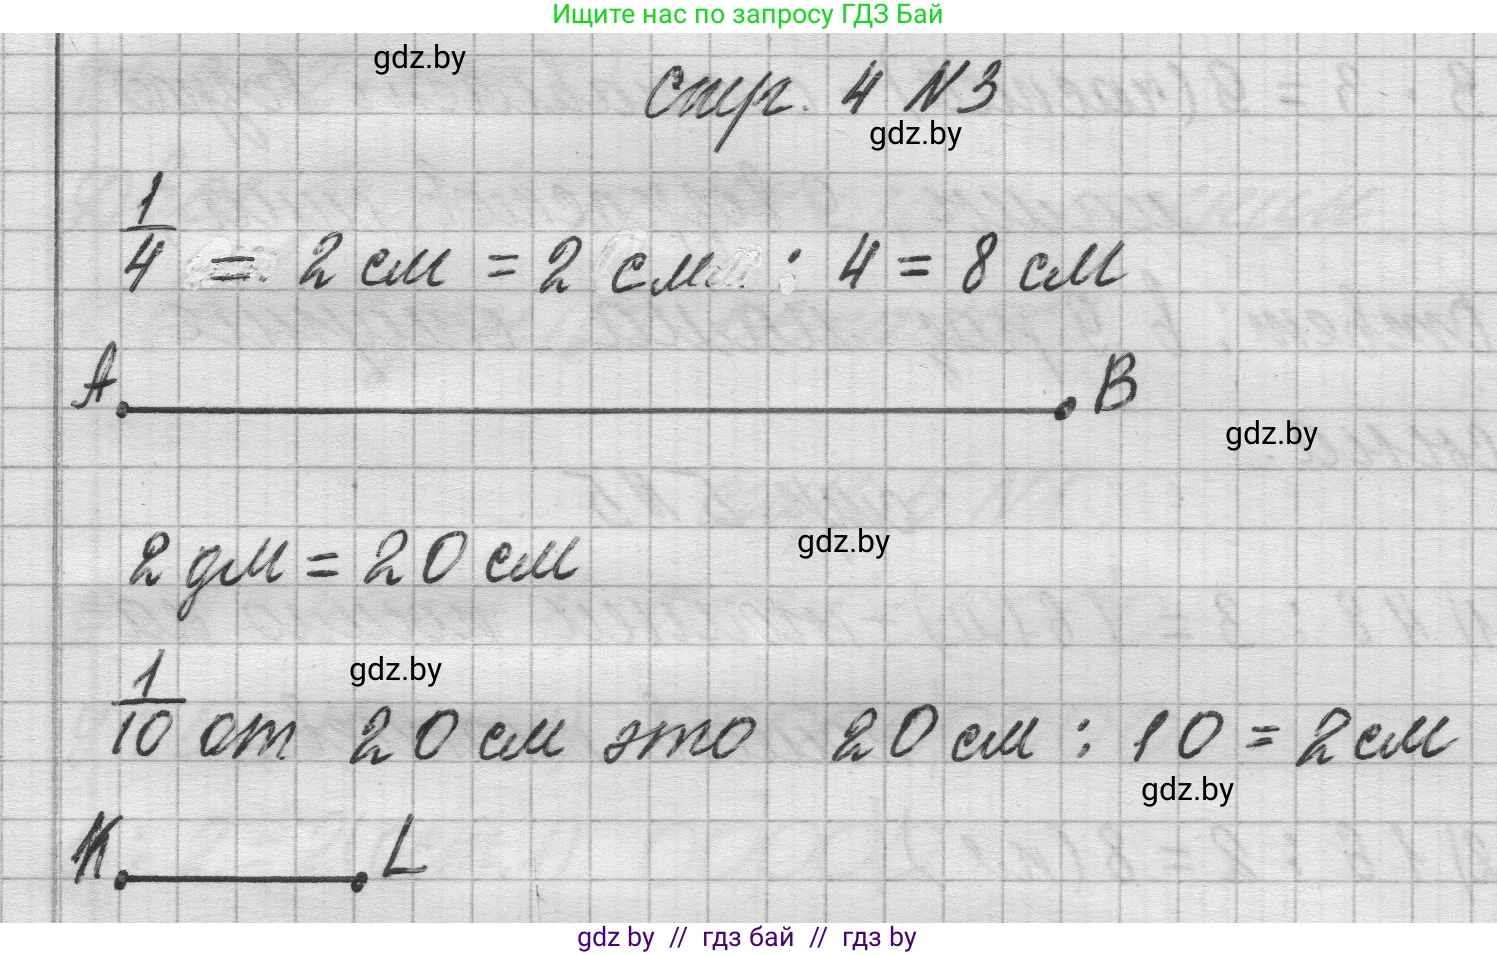 Ищите нас по запросу ГДЗ Бай
gdz.by
стр. 4 N3
gdz.by
1/4 = 2 см = 2 см : 4 = 8 см
A B
gdz.by
2 дм = 20 см
gdz.by
gdz.by
1/10 от 20 см это 20 см : 10 = 2 см
gdz.by
K L
gdz by // гдз бай // гдз by